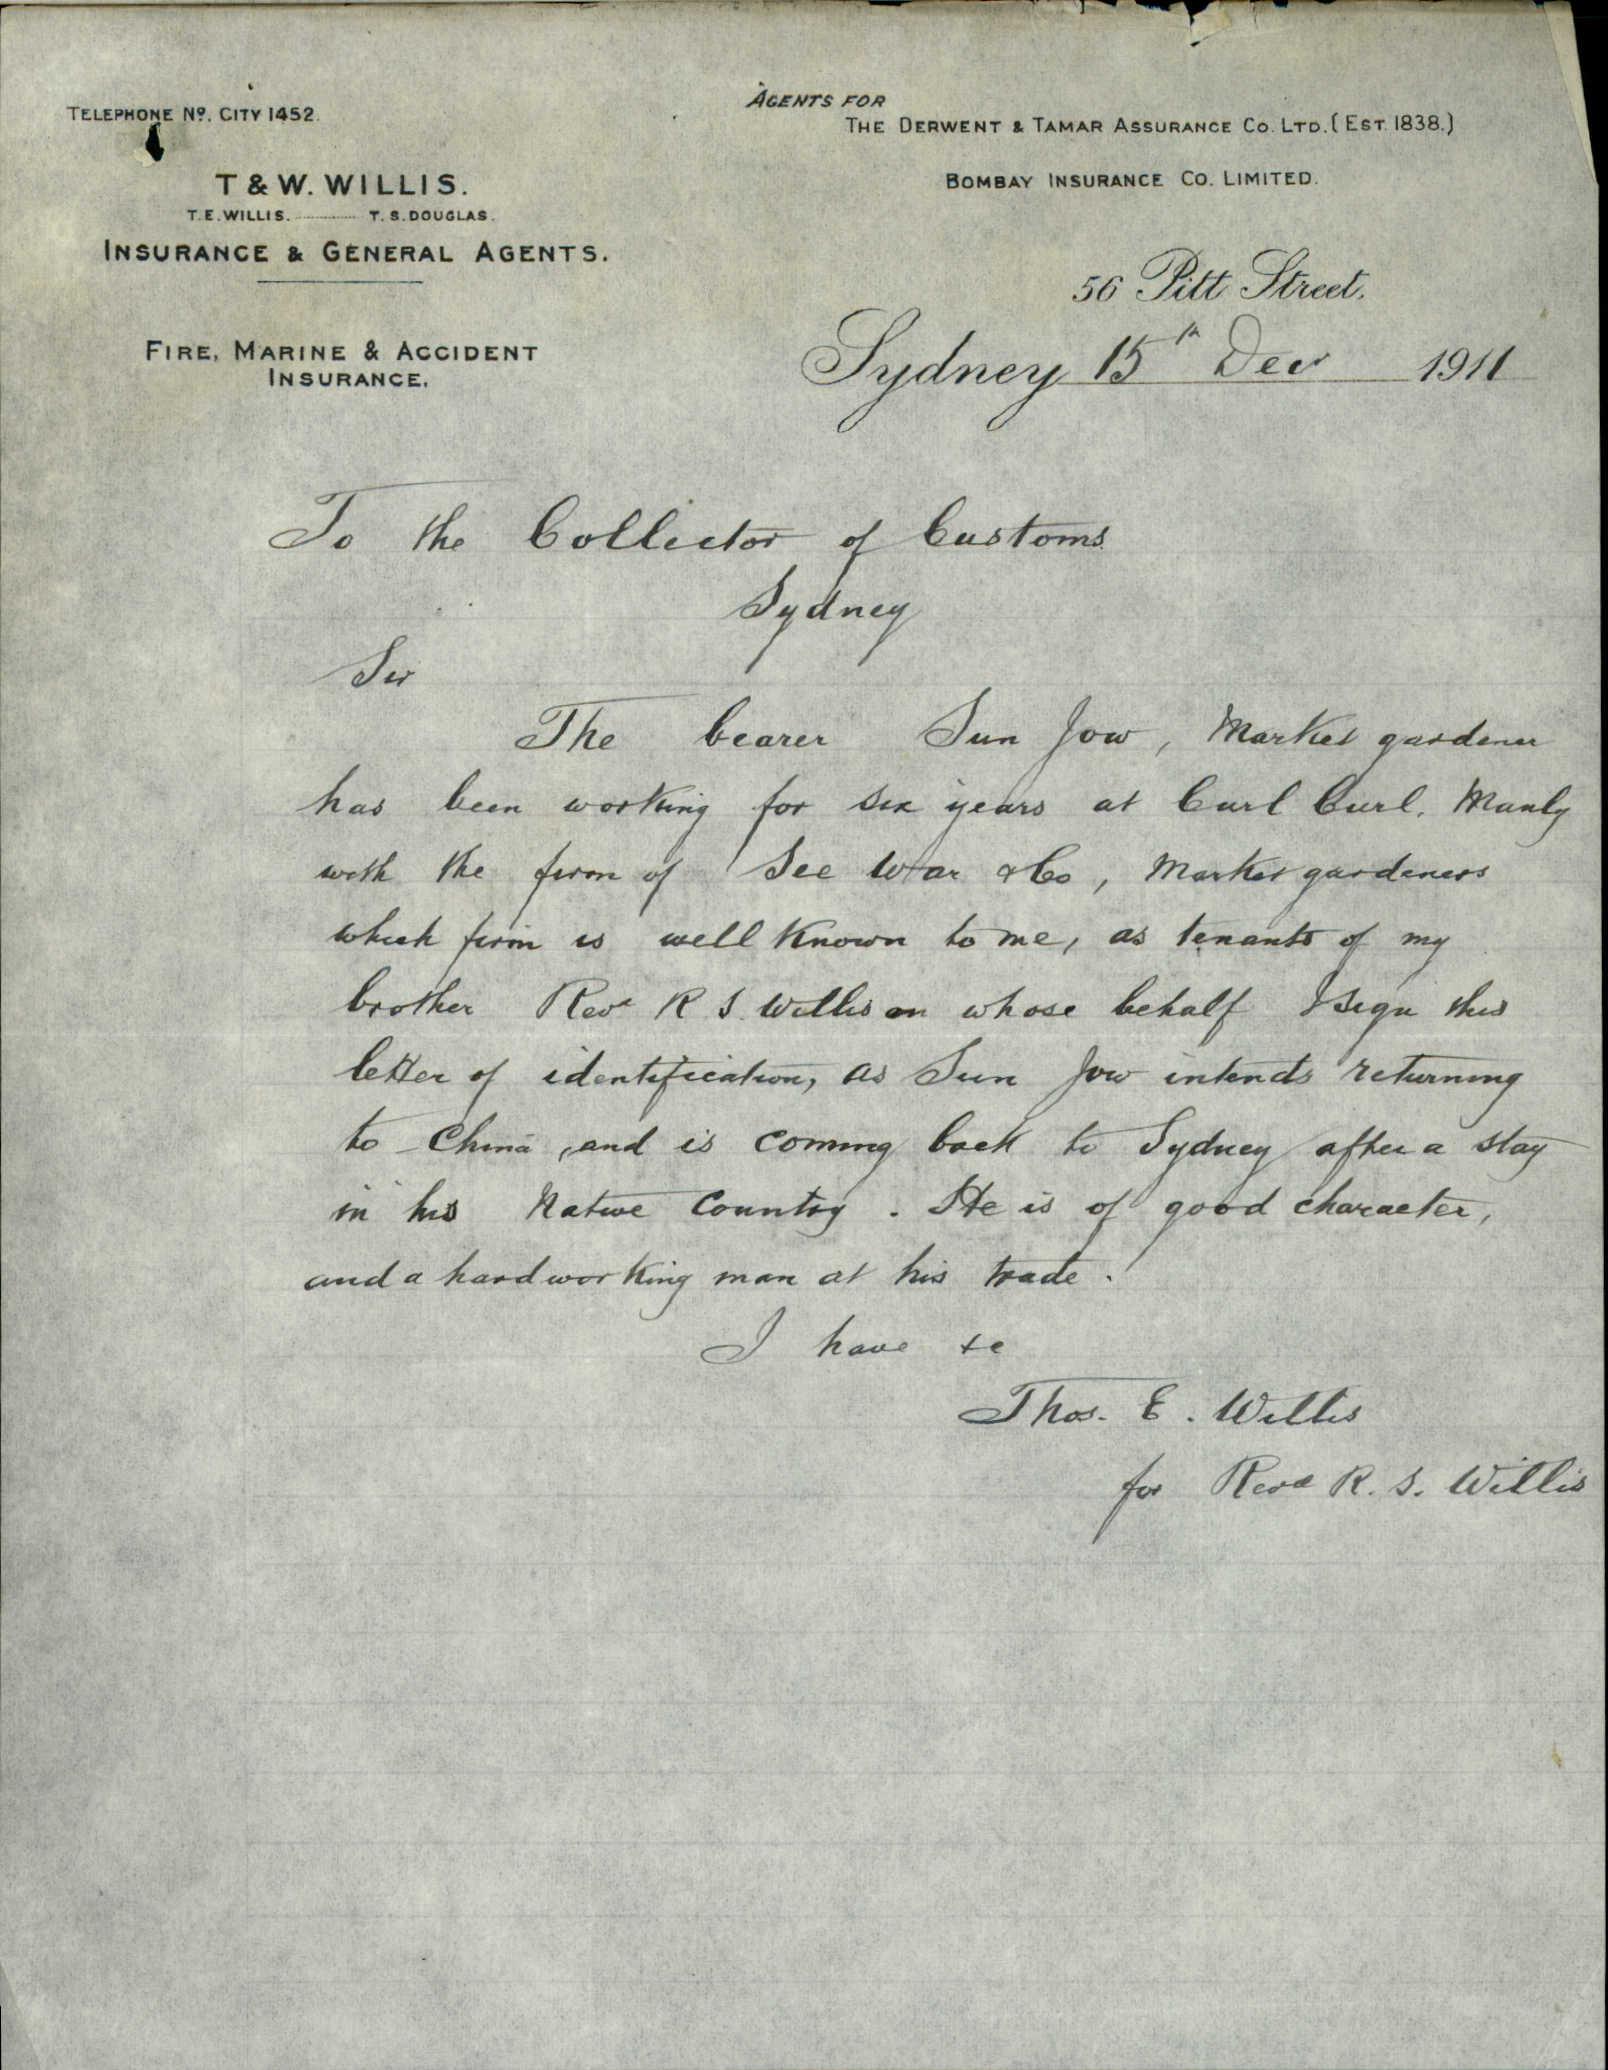 TELEPHONE No. CITY 1452.
AGENTS FOR
THE DERWENT & TAMAR ASSURANCE CO. LTD. (EST. 1838.)
BOMBAY INSURANCE CO. LIMITED.
T & W. WILLIS.
T. E. WILLIS. T. S. DOUGLAS.
INSURANCE & GENERAL AGENTS.
FIRE, MARINE & ACCIDENT
INSURANCE.
56 Pitt Street.
Sydney 15th Decr 1911
To the Collector of Customs
Sydney
Sir
The bearer Sun Jow, Market gardener
has been working for six years at Curl Curl, Manly
with the firm of See War & Co, Market gardeners
which firm is well known to me, as tenants of my
brother Revd R S Willis on whose behalf I sign this
letter of identification, as Sun Jow intends returning
to China, and is coming back to Sydney after a stay
in his Native Country. He is of good character,
and a hardworking man at his trade.
I have &c
Thos. E. Willis
for Revd R. S. Willis